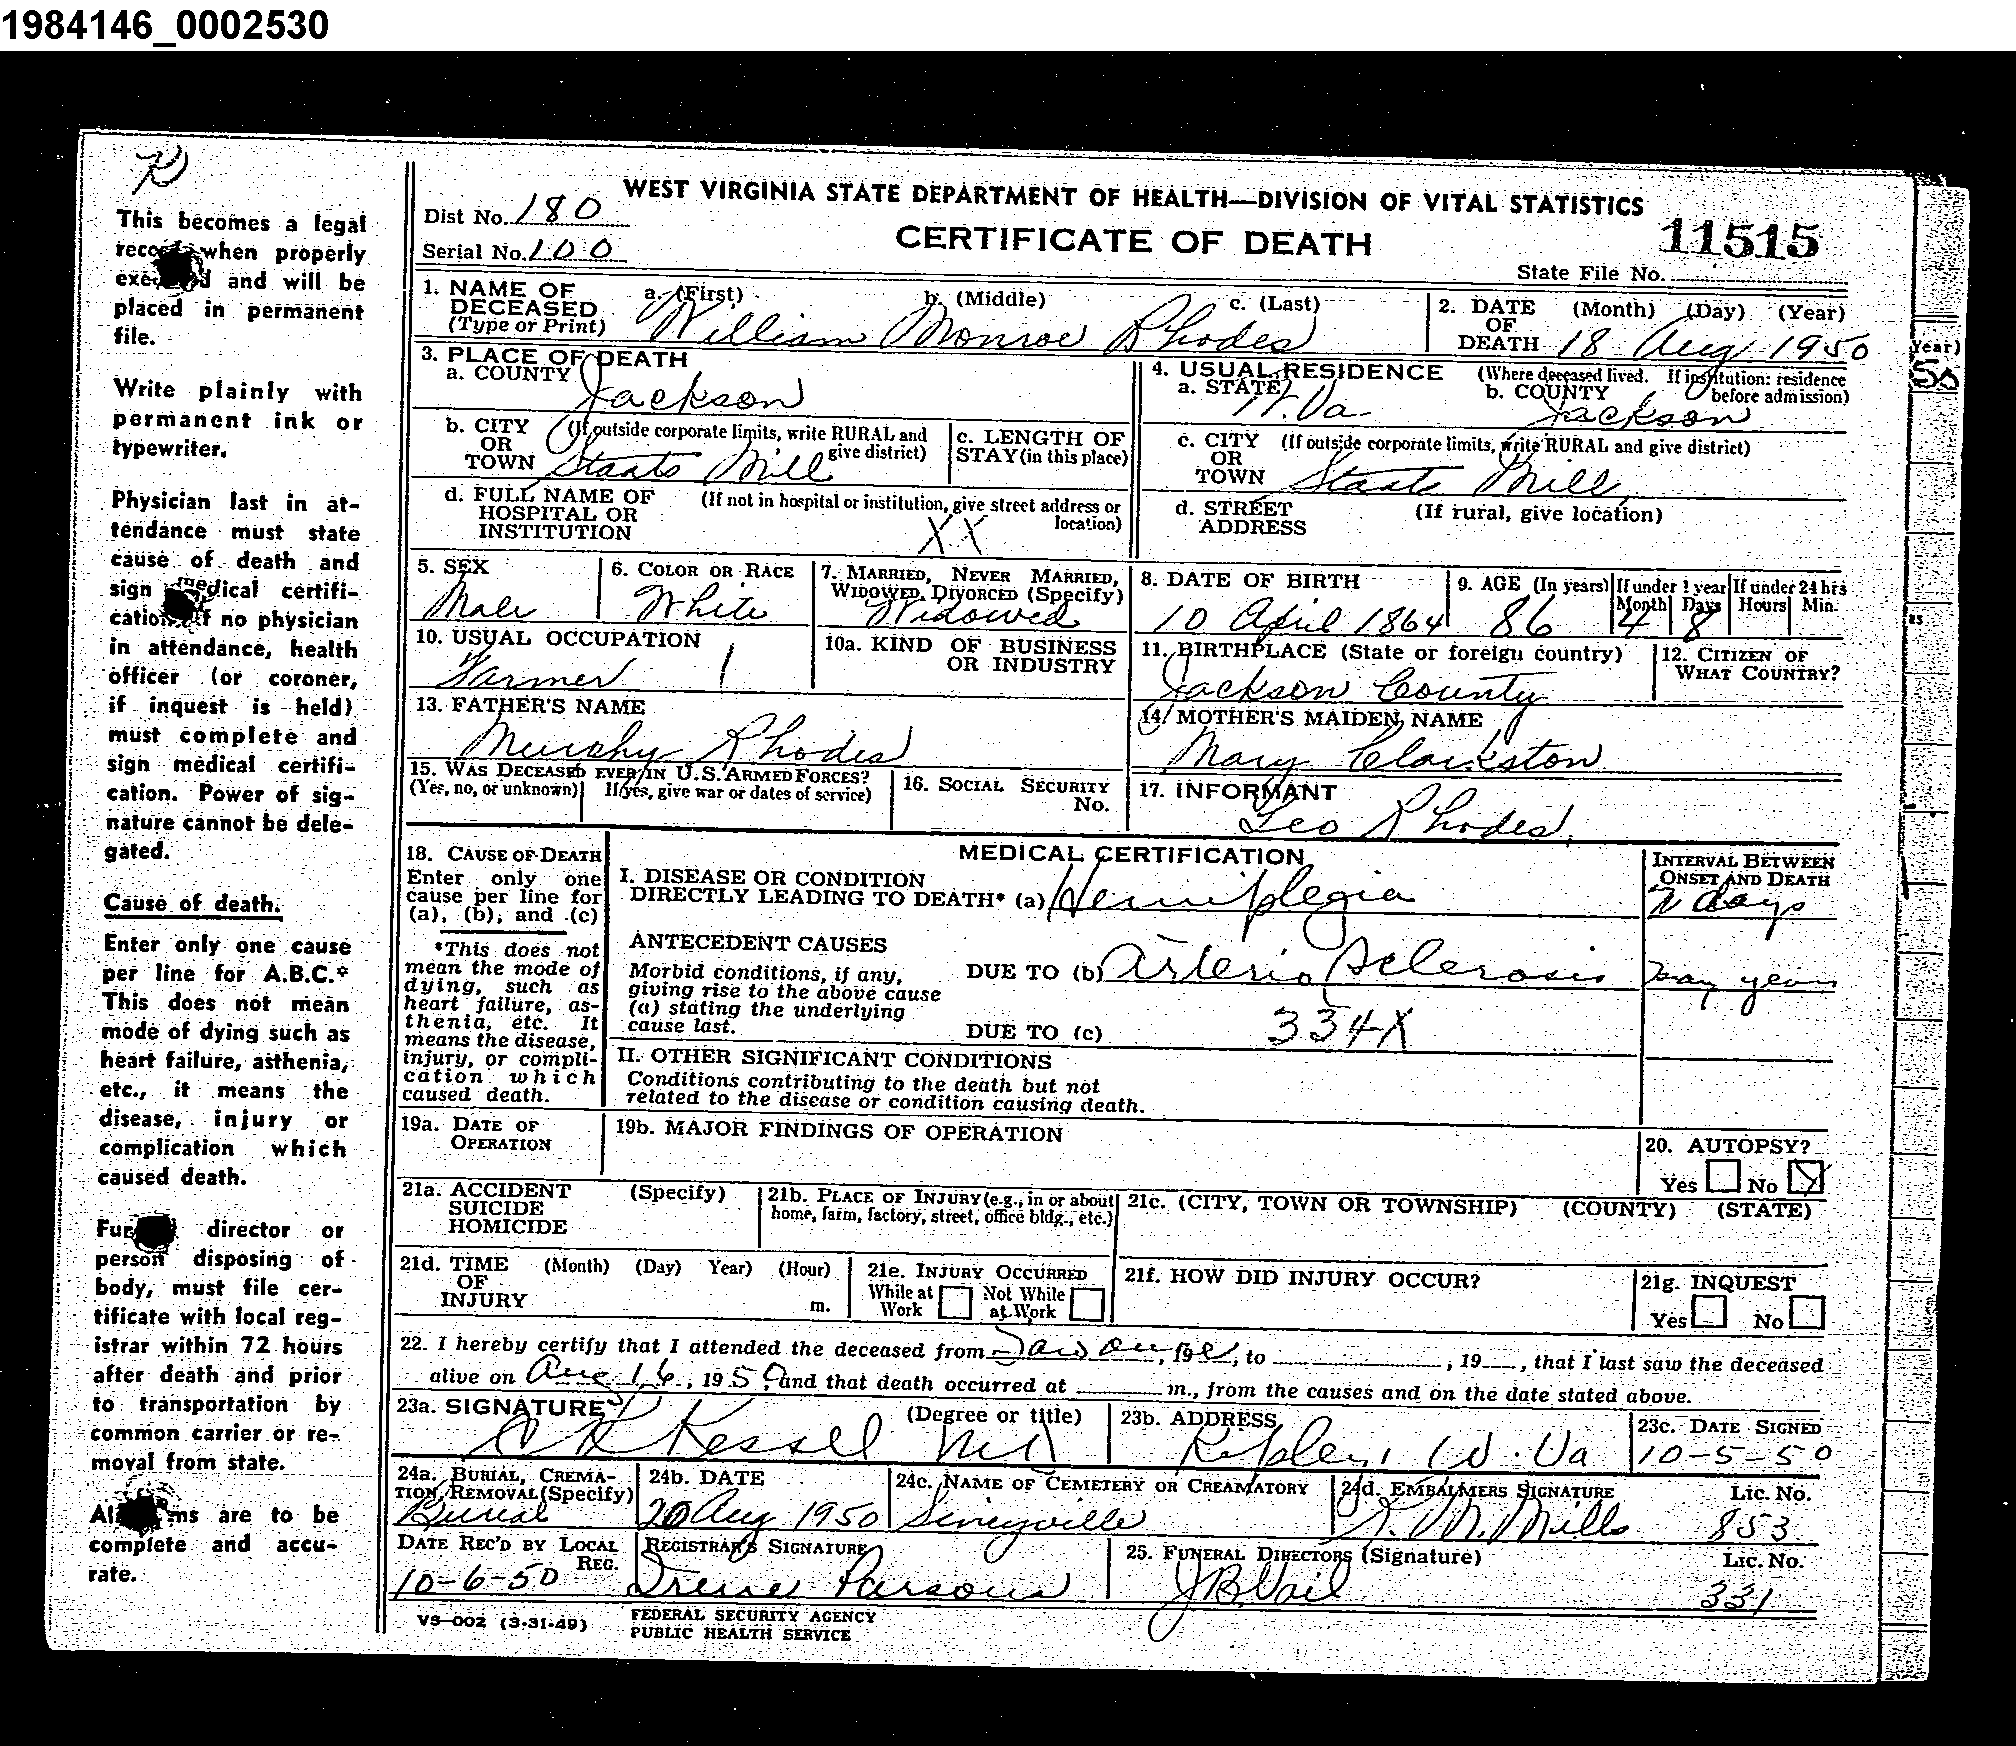 1984146_0002530
This becomes a legal
when properly
and will be
placed in permanent
file.
Write plainly with
permanent ink or
typewriter.
Physician last in at-
tendance must state
cause of death and
sign medical certifi-
cation. If no physician
in attendance, health
officer (or coroner,
if inquest is held)
must complete and
sign medical certifi-
cation. Power of sig-
nature cannot be dele-
gated.
Cause of death.
Enter only one cause
per line for A.B.C.*
This does not mean
mode of dying such as
heart failure, asthenia,
etc., it means the
disease, injury or
complication which
caused death.
director or
person disposing of
body, must file cer-
tificate with local reg-
istrar within 72 hours
after death and prior
to transportation by
common carrier or re-
moval from state.
are to be
complete and accu-
rate.
WEST VIRGINIA STATE DEPARTMENT OF HEALTH—DIVISION OF VITAL STATISTICS
Dist No. 180
CERTIFICATE OF DEATH
Serial No. 100
11515
State File No.
1. NAME OF DECEASED (Type or Print) a. (First) b. (Middle) c. (Last)
William Monroe Rhodes
2. DATE OF DEATH (Month) (Day) (Year)
18 Aug 1950
3. PLACE OF DEATH
a. COUNTY Jackson
4. USUAL RESIDENCE (Where deceased lived. If institution: residence before admission)
a. STATE W.Va. b. COUNTY Jackson
b. CITY OR TOWN (If outside corporate limits, write RURAL and give district) Staats Mill
c. LENGTH OF STAY (in this place)
c. CITY OR TOWN (If outside corporate limits, write RURAL and give district) Staats Mill
d. FULL NAME OF HOSPITAL OR INSTITUTION (If not in hospital or institution, give street address or location) XX
d. STREET ADDRESS (If rural, give location)
5. SEX Male
6. COLOR OR RACE White
7. MARRIED, NEVER MARRIED, WIDOWED, DIVORCED (Specify) Widowed
8. DATE OF BIRTH 10 April 1864
9. AGE (In years) 86
If under 1 year Month 4 Days 8
If under 24 hrs Hours Min.
10. USUAL OCCUPATION Farmer
10a. KIND OF BUSINESS OR INDUSTRY
11. BIRTHPLACE (State or foreign country) Jackson County
12. CITIZEN OF WHAT COUNTRY?
13. FATHER'S NAME Murphy Rhodes
14. MOTHER'S MAIDEN NAME Mary Clarkston
15. WAS DECEASED EVER IN U.S. ARMED FORCES?
(Yes, no, or unknown) If yes, give war or dates of service)
16. SOCIAL SECURITY No.
17. INFORMANT Geo Rhodes
18. CAUSE OF DEATH
Enter only one cause per line for (a), (b), and (c)
*This does not mean the mode of dying, such as heart failure, asthenia, etc. It means the disease, injury, or complication which caused death.
MEDICAL CERTIFICATION
INTERVAL BETWEEN ONSET AND DEATH
I. DISEASE OR CONDITION DIRECTLY LEADING TO DEATH* (a) Hemiplegia 2 days
ANTECEDENT CAUSES
Morbid conditions, if any, giving rise to the above cause (a) stating the underlying cause last.
DUE TO (b) Arterio Sclerosis years
DUE TO (c) 334X
II. OTHER SIGNIFICANT CONDITIONS
Conditions contributing to the death but not related to the disease or condition causing death.
19a. DATE OF OPERATION
19b. MAJOR FINDINGS OF OPERATION
20. AUTOPSY?
Yes No X
21a. ACCIDENT SUICIDE HOMICIDE (Specify)
21b. PLACE OF INJURY (e.g., in or about home, farm, factory, street, office bldg., etc.)
21c. (CITY, TOWN OR TOWNSHIP) (COUNTY) (STATE)
21d. TIME OF INJURY (Month) (Day) Year) (Hour) m.
21e. INJURY OCCURRED
While at Work Not While at Work
21f. HOW DID INJURY OCCUR?
21g. INQUEST
Yes No
22. I hereby certify that I attended the deceased from , 19 , to , 19 , that I last saw the deceased
alive on Aug 16, 1950, and that death occurred at m., from the causes and on the date stated above.
23a. SIGNATURE (Degree or title) Kessel MD
23b. ADDRESS Ripley, W. Va
23c. DATE SIGNED 10-5-50
24a. BURIAL, CREMATION, REMOVAL (Specify) Burial
24b. DATE 20 Aug 1950
24c. NAME OF CEMETERY OR CREAMATORY
24d. EMBALMERS SIGNATURE Lic. No. Mills 853
DATE REC'D BY LOCAL REG. 10-6-50
REGISTRAR'S SIGNATURE Irene Parsons
25. FUNERAL DIRECTORS (Signature) J B Vail Lic. No. 331
VS-002 (3-31-49)
FEDERAL SECURITY AGENCY
PUBLIC HEALTH SERVICE
Year)
50